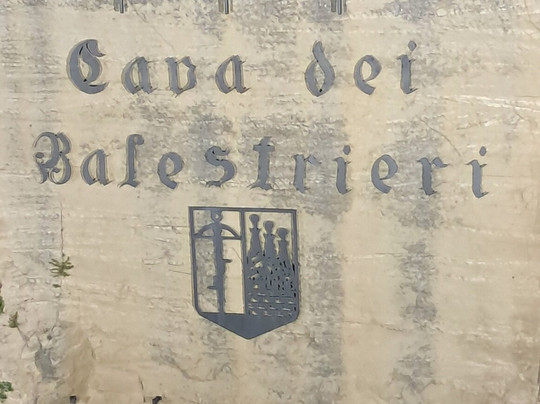 Cava dei
Balestrieri